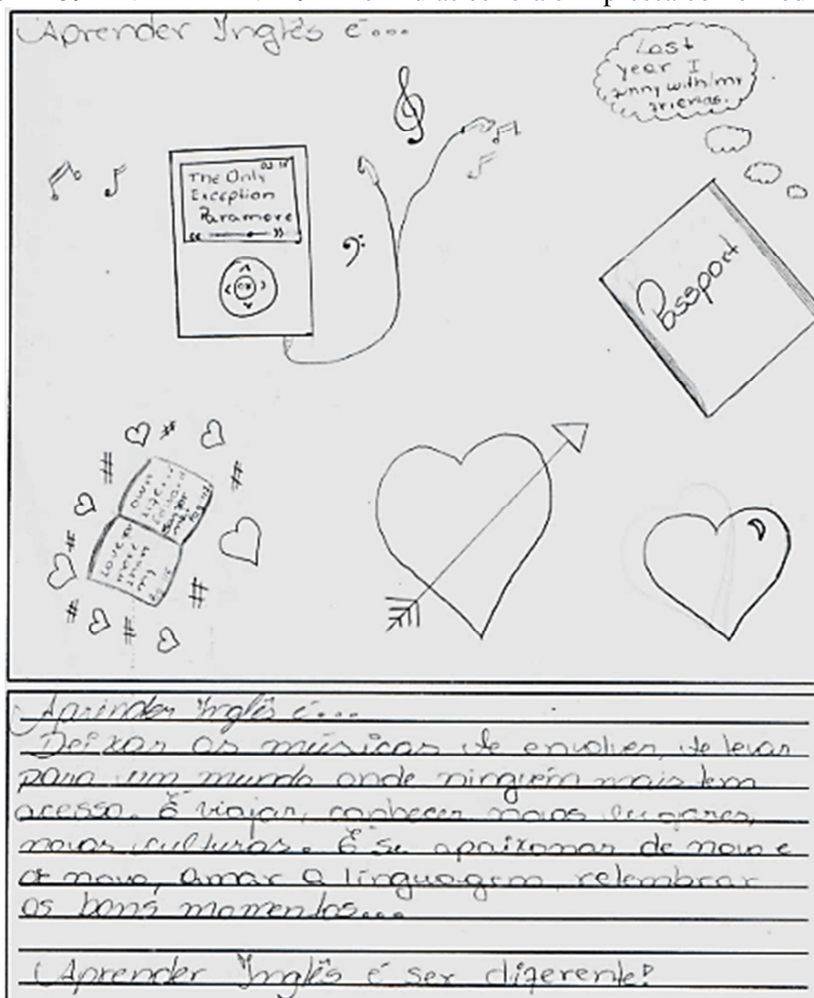 Aprender Inglês é...
Last
year I
with my
friends.
02:15
The Only
Exception
Paramore
OK
Passport
own
Love
Aprender Inglês é...
Deixar as músicas te envolver, te levar
para um mundo onde ninguém mais tem
acesso. É viajar, conhecer novos lugares,
novas culturas. É se apaixonar de novo e
de novo, amar a linguagem, relembrar
os bons momentos...
Aprender Inglês é ser diferente!